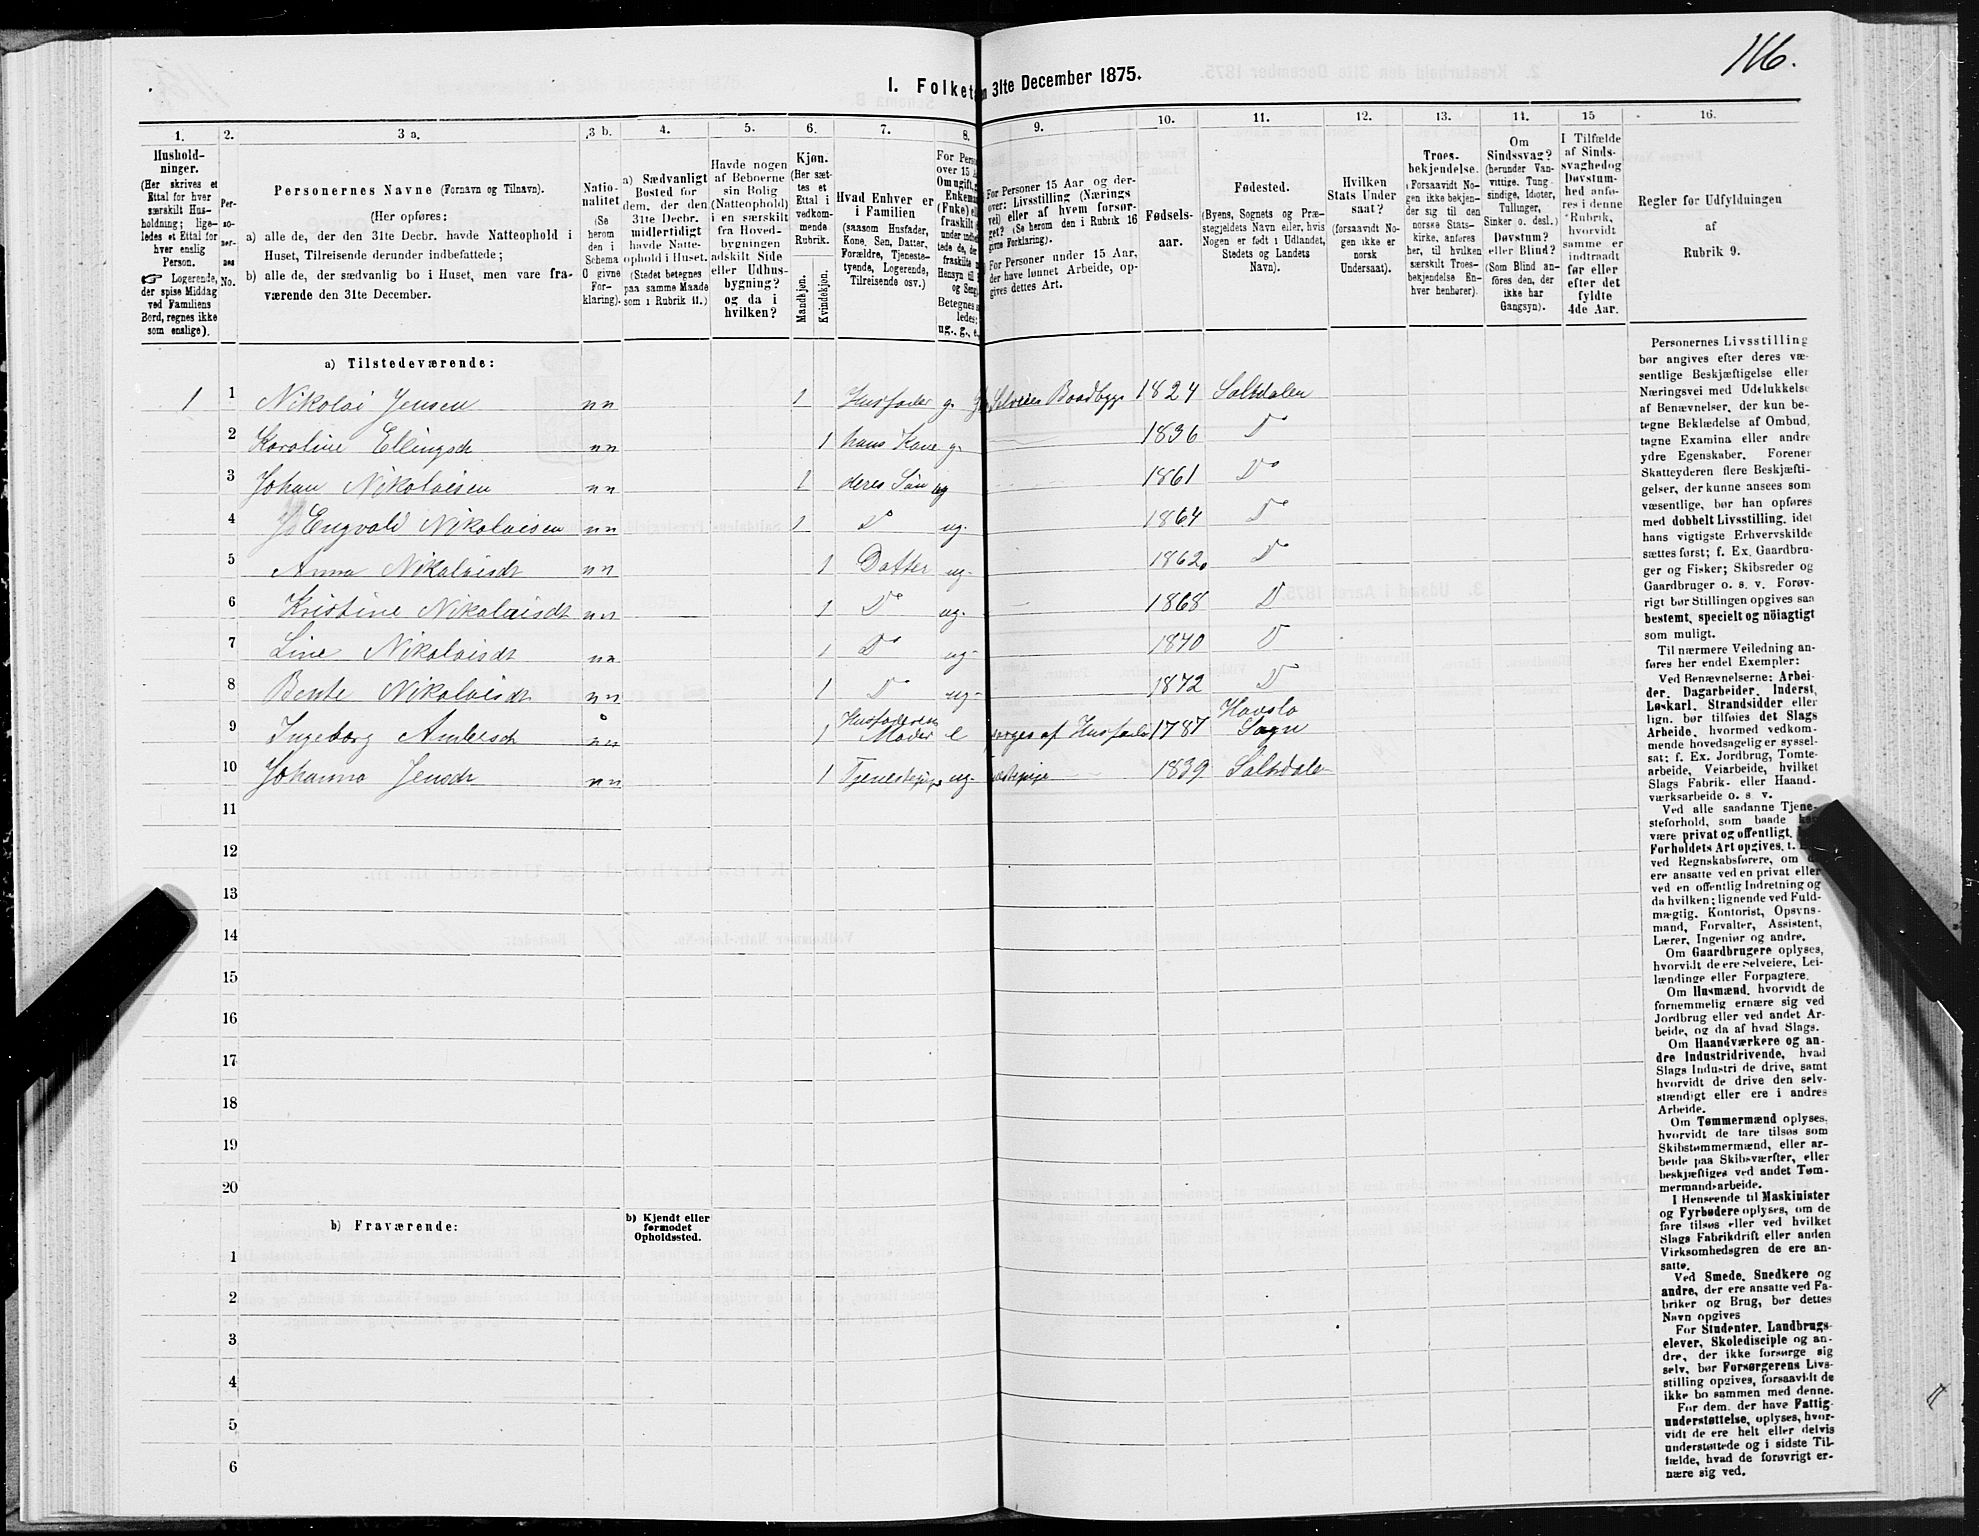 116.
I. Folket
n 31te December 1875.
1.
2.
3 a.
3 b.
4.
5.
6.
7.
8.
9.
10.
11.
12.
13.
14.
15
16.
Hushold-
ninger.
(Her skrives et
Ettal for hver
særskilt Hus-
holdning; lige-
ledes et Ettal for
hver enslig
Person.
☞ Logerende,
der spise Middag
ved Familiens
Bord, regnes ikke
som enslige).
Per-
so-
ner-
nes
No.
Personernes Navne (Fornavn og Tilnavn).
(Her opføres:
a) alle de, der den 31te Decbr. havde Natteophold i
Huset, Tilreisende derunder indbefattede;
b) alle de, der sædvanlig bo i Huset, men vare fra-
værende den 31te December.
Natio-
nalitet
(Se
herom
den i
Schema
O givne
For-
klaring).
a) Sædvanligt
Bosted for
dem, der den
31te Decbr.
midlertidigt
havde Natte-
ophold i Huset.
(Stedet betegnes
paa samme Maade
som i Rubrik 11.)
Havde nogen
af Beboerne
sin Bolig
(Natteophold)
i en særskilt
fra Hoved-
bygningen
adskilt Side
eller Udhus-
bygning?
og da i
hvilken?
Kjøn.
(Her sæt-
tes et
Ettal i
vedkom-
mende
Rubrik.
Mandkjøn.
Kvindekjøn.
Hvad Enhver er
i Familien
(saasom Husfader,
Kone, Søn, Datter,
Forældre, Tjeneste-
tyende, Logerende,
Tilreisende osv.)
For Perso
over 15 A
Om ugift,
Enkema
(Fuke) el
fraskilt
under indbe
tede de, der
fraskilte
Hensyn til
og Seng
Betegnes s
ledes:
ug., g., e.,
For Personer 15 Aar og der-
over: Livsstilling (Nærings
vei) eller af hvem forsør-
get? (Se herom den i Rubrik 16
givne Forklaring).
For Personer under 15 Aar,
der have lønnet Arbeide, op-
gives dettes Art.
Fødsels-
aar.
Fødested.
(Byens, Sognets og Præ-
stegjeldets Navn eller, hvis
Nogen er født i Udlandet,
Stedets og Landets
Navn).
Hvilken
Stats Under
saat?
(forsaavidt No-
gen ikke er
norsk
Undersaat).
Troes-
bekjendelse.
(Forsaavidt No-
gen ikke bekjen-
der sig til den
norske Stats-
kirke, anføres
her, til hvilken
særskilt Troes-
bekjendelse En-
hver henhører).
Om
Sindssvag?
(herunder Van-
vittige, Tung-
sindige, Idioter,
Tullinger,
Sinker o. desl.)
Døvstum?
eller Blind?
(Som Blind an-
føres den, der
ikke har
Gangsyn).
I Tilfælde
af Sinds-
svaghed og
Døvstum-
hed anfø-
res i denne
Rubrik,
hvorvidt
samme er
indtraadt
før eller
efter det
fyldte
4de Aar.
Regler for Udfyldningen
af
Rubrik 9.
a) Tilstedeværende:
1 1 Nikolai Jensen n n 1 Husfader g. Selveier Baadbygr 1824 Saltdalen
2 Karoline Ellingsdt n n 1 hans Kone g. 1836 Do
3 Johan Nikolaisen n n 1 deres Søn ug 1861 Do
4 Engvald Nikolaisen n n 1 Do ug. 1864 Do
5 Anna Nikolaisdt n n 1 Datter ug. 1862 Do
6 Kristine Nikolaisdt n n 1 Do ug. 1868 Do
7 Line Nikolaisdt n n 1 Do ug. 1870 Do
8 Bente Nikolaisdt n n 1 Do ug. 1872 Do
9 Ingeborg n n 1 Husfaderens Moder e sørges af Husfader 1787 Havslo Sogn
10 Johanna Jensdt n n 1 Tjenestepige ug. 1839 Saltdalen
11
12
13
14
15
16
17
18
19
20
b) Fraværende:
b) Kjendt eller
formodet
Opholdssted.
1
2
3
4
5
6
Personernes Livsstilling
bør angives efter deres væ-
sentlige Beskjæftigelse eller
Næringsvei med Udelukkelse
af Benævnelser, der kun be-
tegne Beklædelse af Ombud,
tagne Examina eller andre
ydre Egenskaber. Forener
Skatteyderen flere Beskjæfti-
gelser, der kunne ansees som
væsentlige, bør han opføres
med dobbelt Livsstilling, idet
hans vigtigste Erhvervskilde
sættes først; f. Ex. Gaardbru-
ger og Fisker; Skibsreder og
Gaardbruger o. s. v. Forøv-
rigt bør Stillingen opgives saa
bestemt, specielt og nöiagtigt
som muligt.
Til nærmere Veiledning an-
føres her endel Exempler:
Ved Benævnelserne: Arbei-
der, Dagarbeider, Inderst,
Løskarl, Strandsidder eller
lign. bør tilføies det Slags
Arbeide, hvormed vedkom-
mende hovedsagelig er syssel-
sat; f. Ex. Jordbrug, Tomte-
arbeide, Veiarbeide, hvilket
Slags Fabrik- eller Haand-
værksarbeide o. s. v.
Ved alle saadanne Tjene-
steforhold, som baade
være privat og offentligt,
Forholdets Art opgives, t.
ved Regnskabsførere, om d
ere ansatte ved en privat eller
ved en offentlig Indretning og
da hvilken; lignende ved Fuld-
mægtig, Kontorist, Opsyns-
mand, Forvalter, Assistent,
Lærer, Ingeniør og andre.
Om Gaardbrugere oplyses,
hvorvidt de ere Selveiere, Lei-
lændinge eller Forpagtere.
Om Husmænd, hvorvidt de
fornemmelig ernære sig ved
Jordbrug eller ved andet Ar-
beide, og da af hvad Slags.
Om Haandværkere og an-
dre Industridrivende, hvad
Slags Industri de drive, samt
hvorvidt de drive den selv-
stændigt eller ere i andres
Arbeide.
Om Tømmermænd oplyses,
hvorvidt de fare tilsøs som
Skibstømmermænd, eller ar-
beide paa Skibsværfter, eller
beskjæftiges ved andet Tøm-
mermandsarbeide.
I Henseende til Maskinister
og Fyrbødere oplyses, om de
fare tilsøs eller ved hvilket
Slags Fabrikdrift eller anden
Virksomhedsgren de ere an-
satte.
Ved Smede, Snedkere og
andre, der ere ansatte ved Fa-
briker og Brug, bør dettes
Navn opgives
For Studenter, Landbrugs-
elever, Skoledisciple og an-
dre, der ikke forsørge sig
selv, bør Forsørgerens Livs-
stilling opgives, forsaavidt de
ikke bo sammen med denne.
For dem, der have Fattig-
understøttelse, oplyses, hvor-
vidt de ere helt eller delvis
understøttede og i sidste Til-
fælde, hvad de forøvrigt er-
nære sig ved.